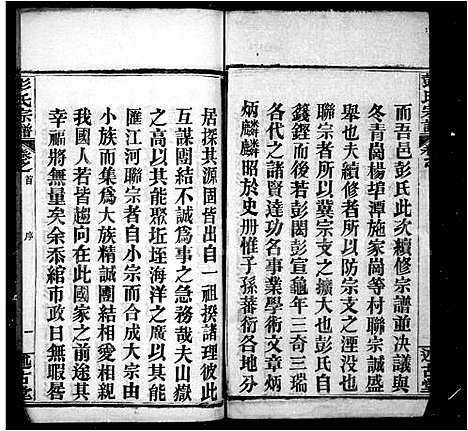 彭氏宗譜
述古堂
而吾邑彭氏此次續修宗譜並決議與
冬青崗楊埠潭施家崗等村聯宗誠盛
舉也夫續修者所以防宗支之湮沒
聯宗者所以冀宗支之擴大也彭氏自
籛鏗而後若彭閎彭宣龜年三奇三瑞
各代之諸賢達功名事業學術文章炳
炳麟麟昭於史册惟子孫蕃衍各地分
居探其源固皆出自一祖揆諸理彼此
互謀團結不誠為事之急務哉夫山嶽
之高以其能聚坵垤海洋之廣以其能
匯江河聯宗者自小宗而合成大宗由
小族而集為大族精誠團結相愛相親
我國人若皆趨向在此國家之前途其
幸福將無量矣余忝綰市政日無暇晷
彭氏宗譜
卷首
序
一
述古堂